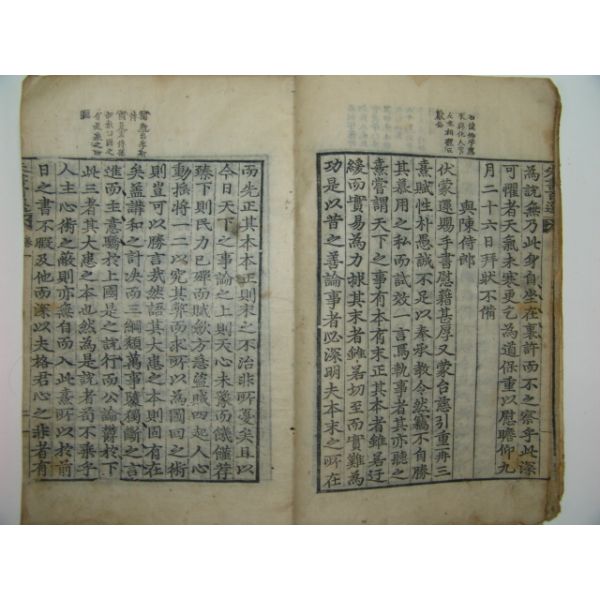 為說無乃此身自坐在裏許而不之察乎此深
可懼者天氣未寒更乞為道保重以慰瞻仰九
月二十六日拜狀不備
與陳侍郎
伏蒙還賜手書慰藉甚厚又蒙台慈引重再三
熹賦性朴愚誠不足以奉承教令然竊不自勝
其慕用之私而試效一言焉執事者其亦聽之
熹嘗謂天下之事有本有末正其本者雖若迂
緩而實易為力捄其末者雖若切至而實難為
功是以昔之善論事者必深明夫本末之所在
而先正其本本正則末之不治非所憂矣且以
今日天下之事論之上則天心未豫而饑饉荐
臻下則民力已殫而賦斂方急盜賊四起人心
動搖將一二以究其弊而求所以為圖回之術
則豈可以勝言哉然語其大患之本則固有在
矣盖講和之計決而三綱頹萬事隳獨斷之言
進而主意驕於上國是之說行而公論鬱於下
此三者其大患之本也然為是說者苟不乘乎
人主心術之蔽則亦無自而入此熹所以於前
日之書不暇及他而深以夫格君心之非者有